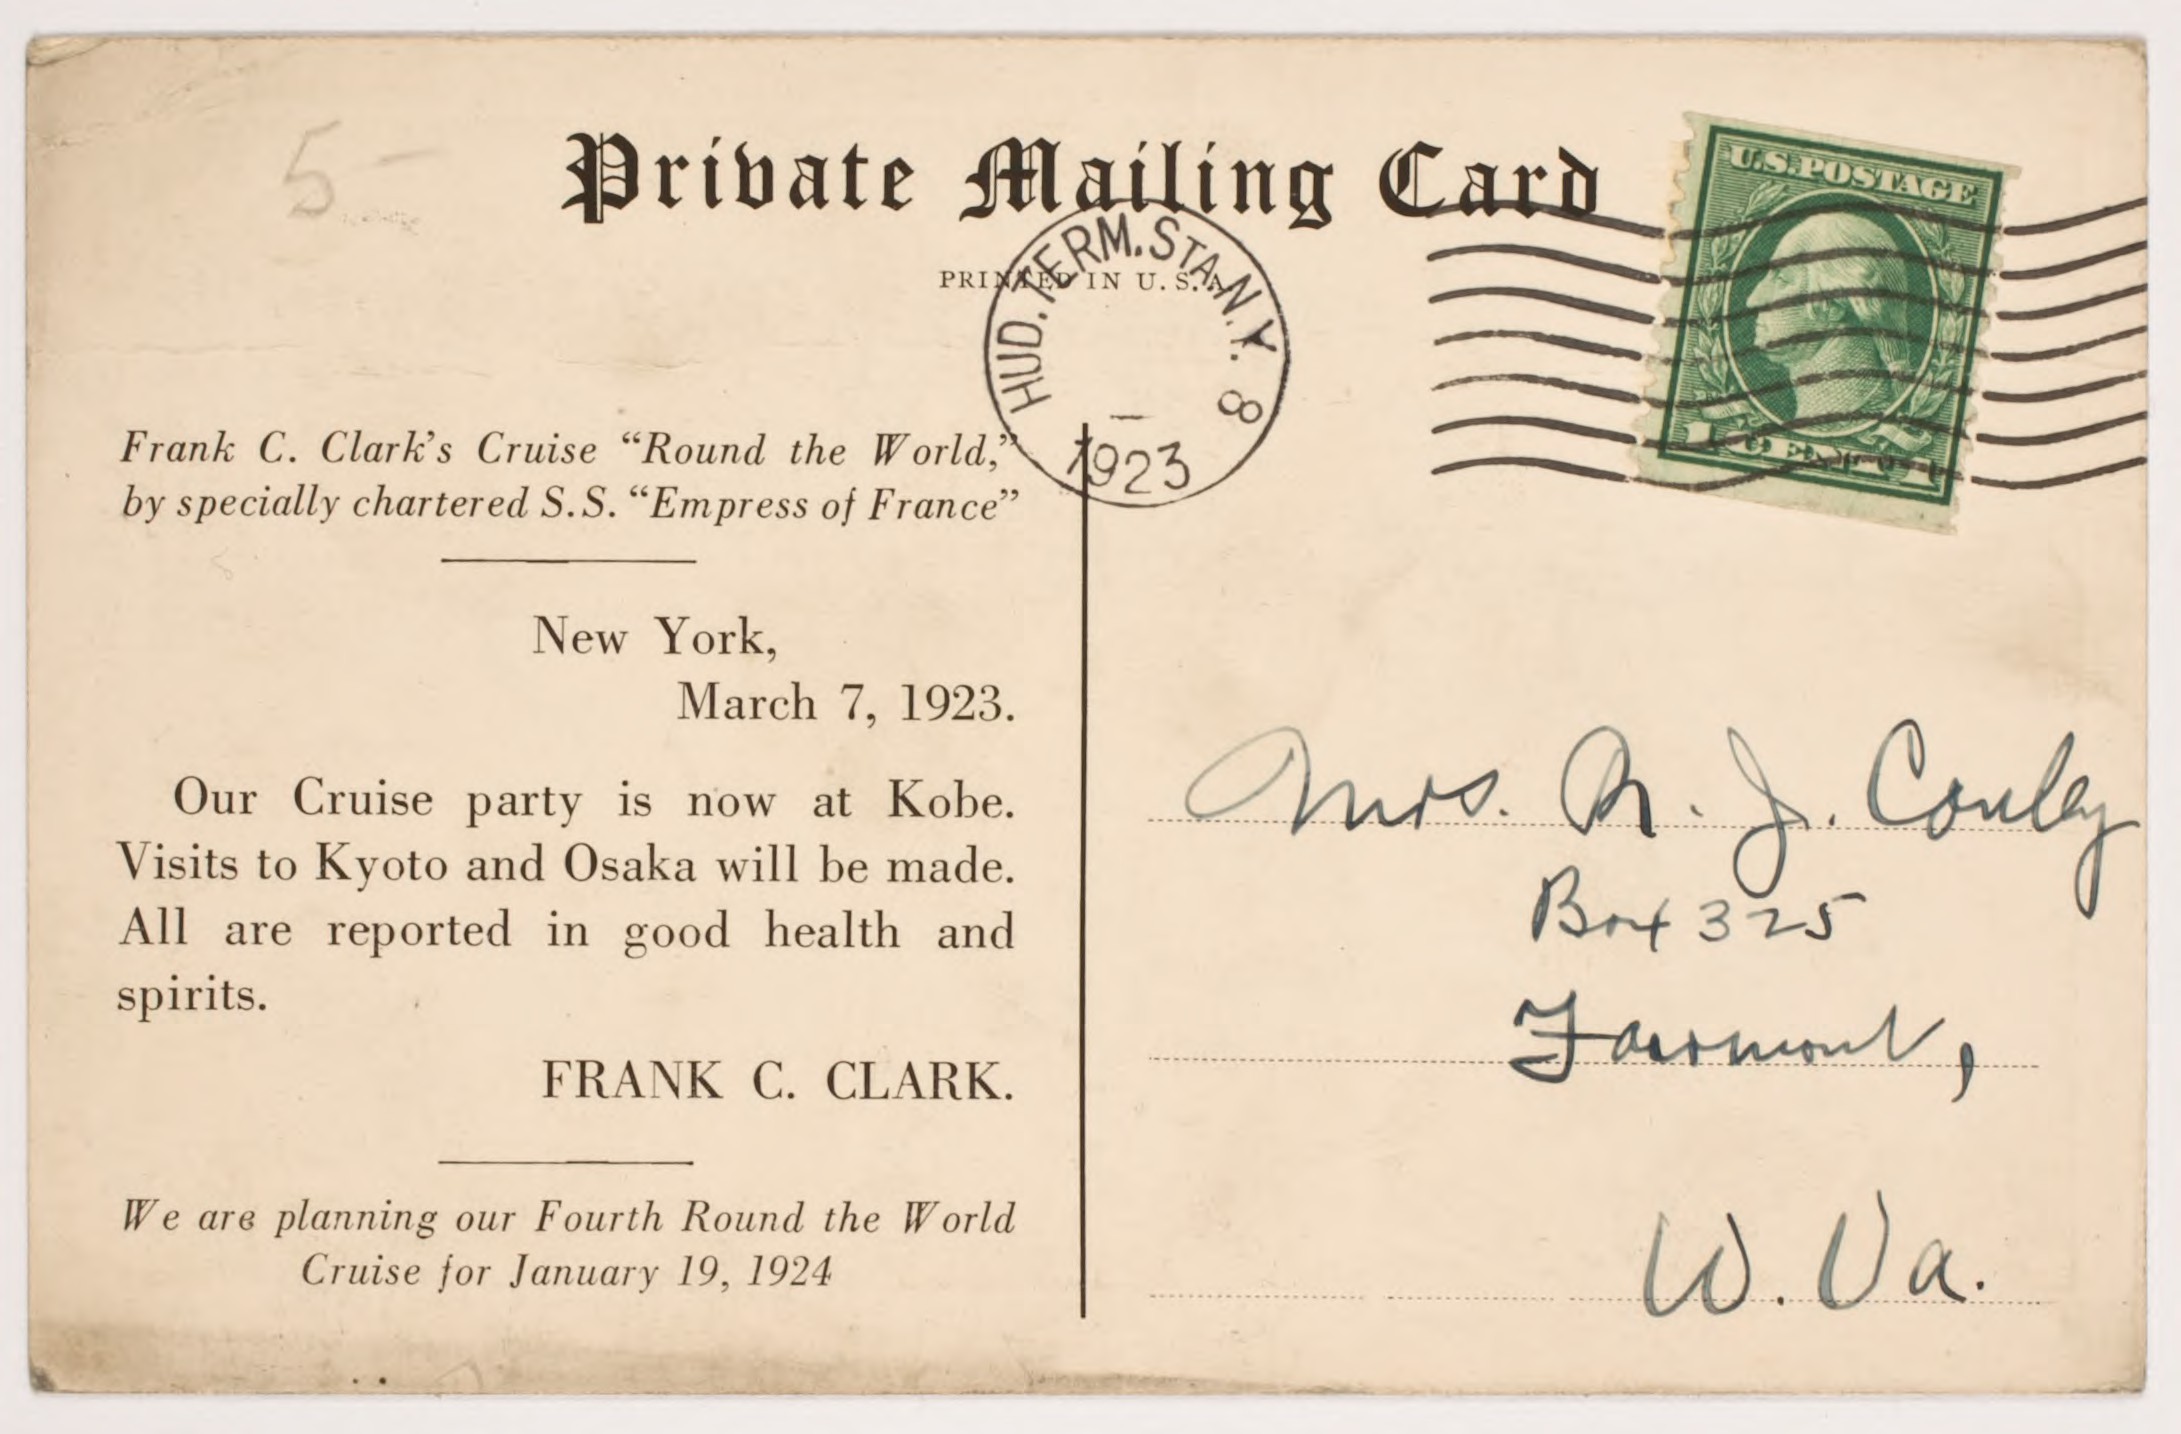 5-
Private Mailing Card
PRINTED IN U.S.A.
HUD. TERM. STA. N.Y. 8
1923
U.S. POSTAGE
1 CENT 1
Frank C. Clark's Cruise “Round the World,”
by specially chartered S.S. “Empress of France”
New York,
March 7, 1923.
Our Cruise party is now at Kobe.
Visits to Kyoto and Osaka will be made.
All are reported in good health and
spirits.
FRANK C. CLARK.
We are planning our Fourth Round the World
Cruise for January 19, 1924
Mrs. N. J. Conley
Box 325
Fairmont,
W. Va.